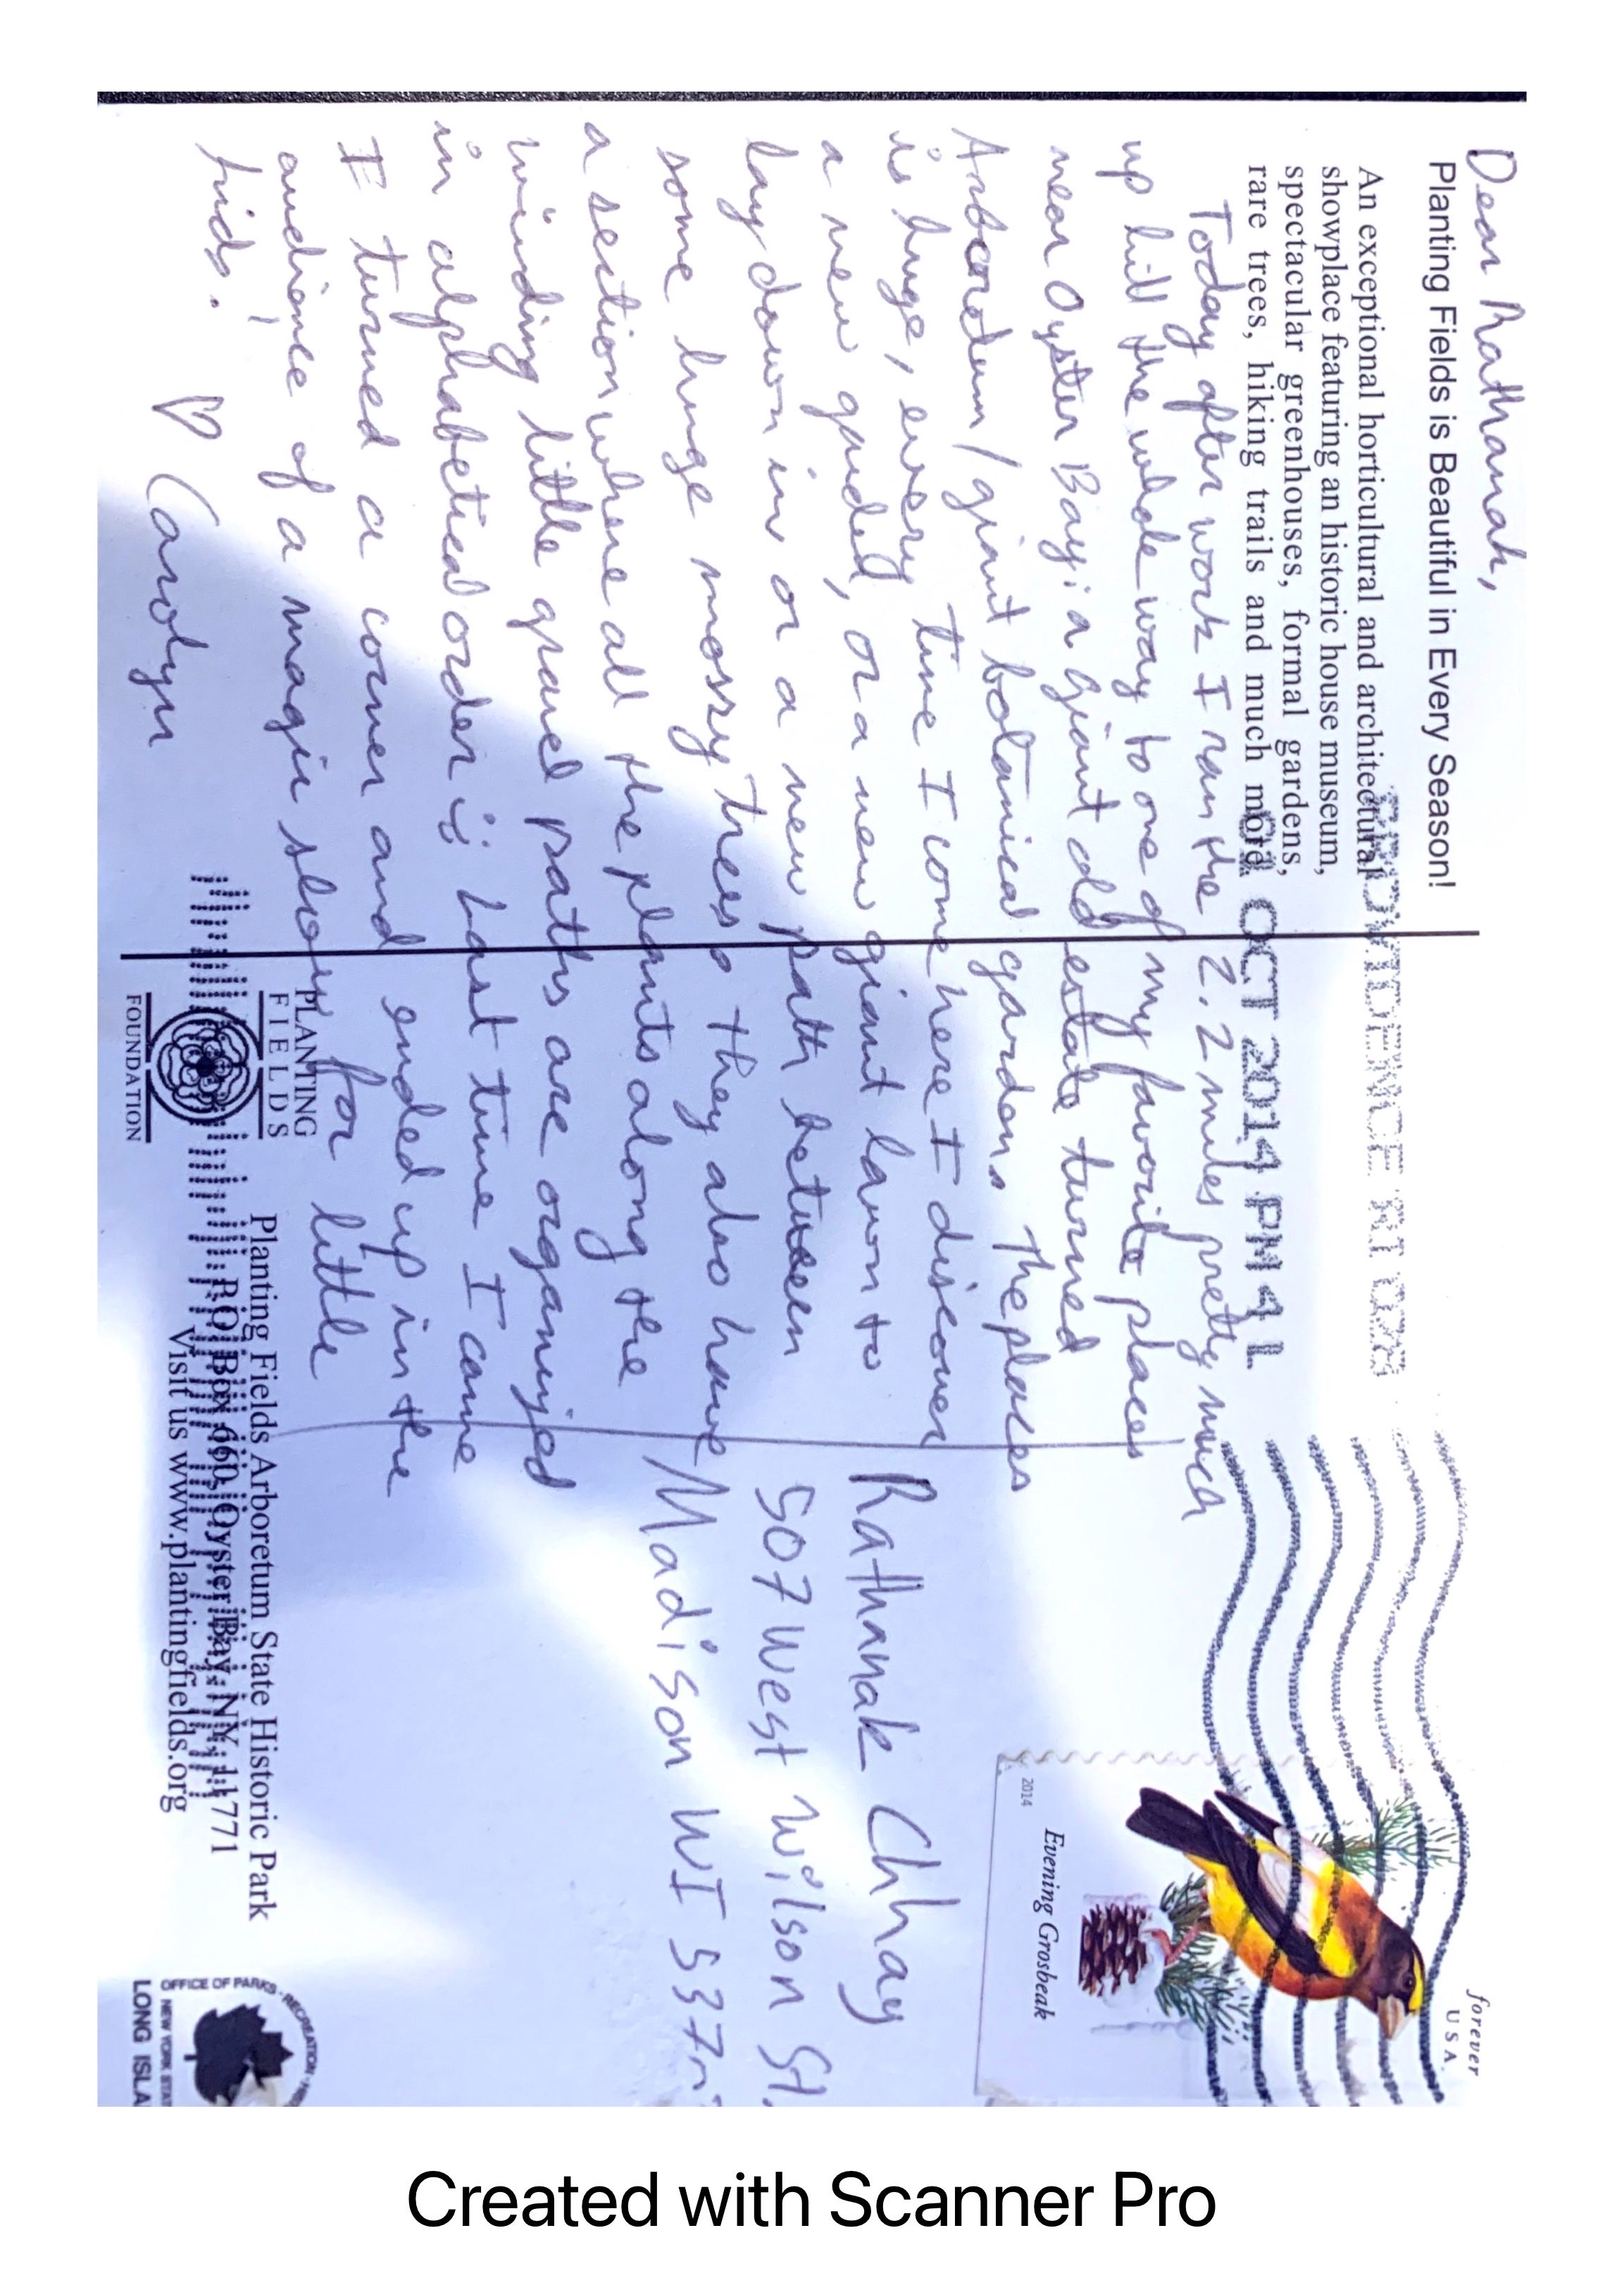 Dear Rathanak,
Planting Fields is Beautiful in Every Season!
An exceptional horticultural and architectural
showplace featuring an historic house museum,
spectacular greenhouses, formal gardens,
rare trees, hiking trails and much more
PROVIDENCE RI 028
01 OCT 2014 PM 4 L
forever
USA
Evening Grosbeak
2014
Today after work I ran the 2.2 miles pretty much
up hill the whole way to one of my favorite places
near Oyster Bay: a giant old estate turned
Arboretum/giant botanical gardens. The places
is huge, every time I come here I discover
a new garded, or a new giant lawn to
lay down in or a new path between
some huge mossy trees. They also have
a section where all the plants along the
winding little gravel paths are organized
in alphabetical order: Last time I came
I turned a corner and ended up in the
audience of a magic story for little
kids!
♡ Carolyn
Rathanak Chhay
507 West Wilson St.
Madison WI 537
PLANTING
FIELDS
FOUNDATION
Planting Fields Arboretum State Historic Park
PO Box 660, Oyster Bay, NY 11771
Visit us www.plantingfields.org
OFFICE OF PARKS, RECREATION
NEW YORK STAT
LONG ISLA
Created with Scanner Pro